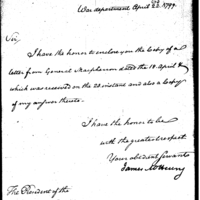 War department April 23. 1799.
Sir,
I have the honor to enclose you the Copy of a
letter from General Macpherson dated the 18 April &
which was received on the 22 instant and also a Copy
of my answer thereto.
I have the honor to be
with the greatest respect
Your obedient Servant
James McHenry
The President of the